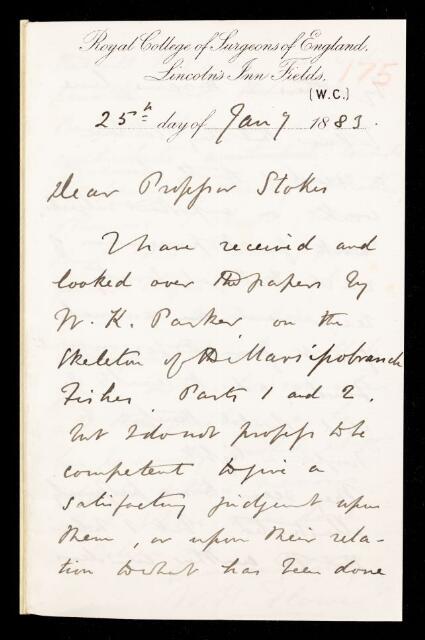 Royal College of Surgeons of England,
Lincoln's Inn Fields,
175
(W.C.)
25th day of Jany 1883.
Dear Professor Stokes
I have received and
looked over the papers by
W. K. Parker on the
Skeleton of the Marsipobranch
Fishes Parts 1 and 2,
but I do not profess to be
competent to give a
satisfactory judgment upon
them, or upon their rela-
tion to what has been done